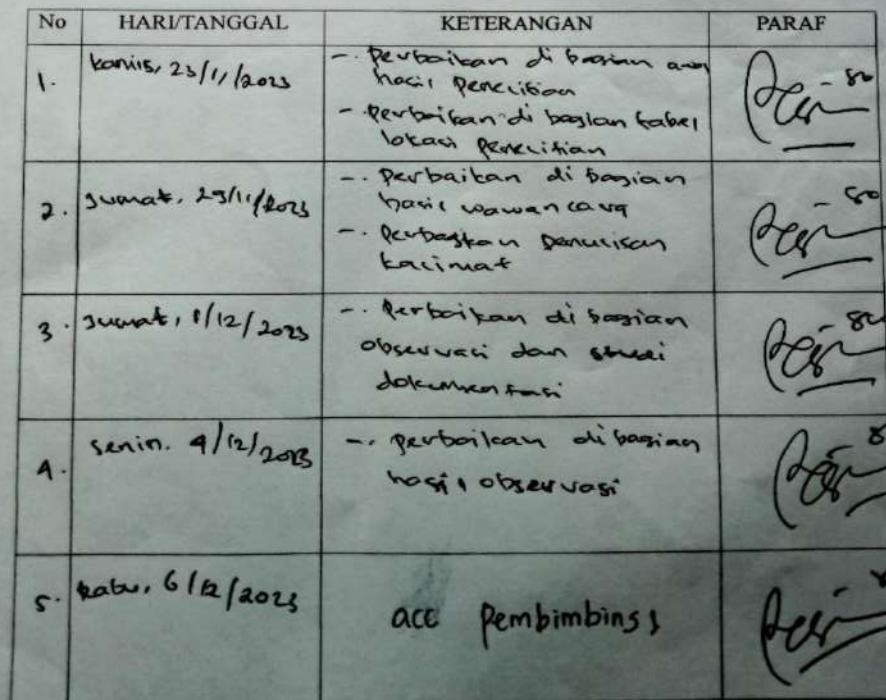 No HARI/TANGGAL KETERANGAN PARAF
1. kamis, 23/11/2023
-. Perbaikan di bagian
hasil penelitian
- Perbaikan di bagian tabel
lokasi penelitian
2. Jumat, /11/2023
-. Perbaikan di bagian
hasil wawancara
-. penulisan
kalimat
3. Jumat, 1/12/2023
-. Perbaikan di bagian
observasi dan studi
dokumentasi
4. Senin. 4/12/2023
-. Perbaikan di bagian
hasil observasi
5. Rabu, 6/12/2023
acc Pembimbing